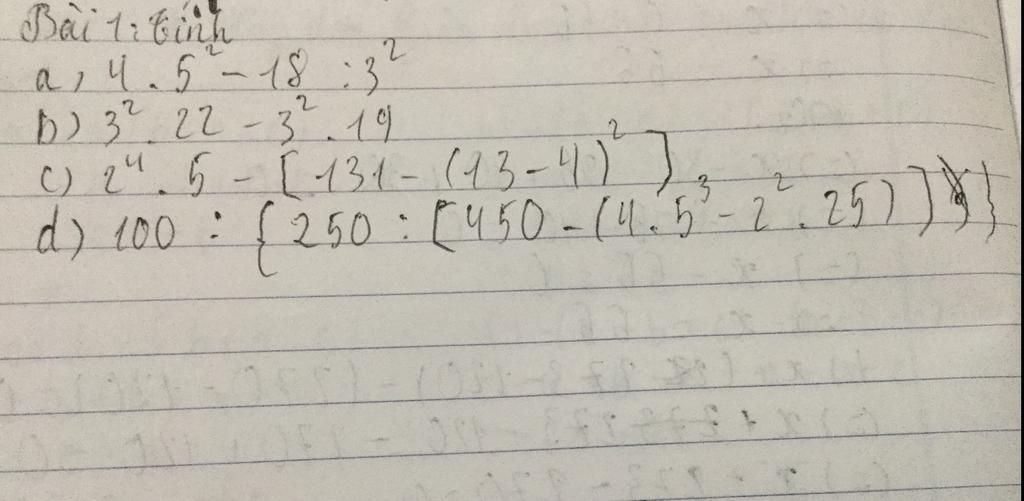 Bài 1: tính
a, 4 . 5² - 18 : 3²
b) 3² . 22 - 3² . 19
c) 2⁴ . 5 - [131 - (13 - 4)²]
d) 100 : {250 : [450 - (4 . 5³ - 2² . 25)]}